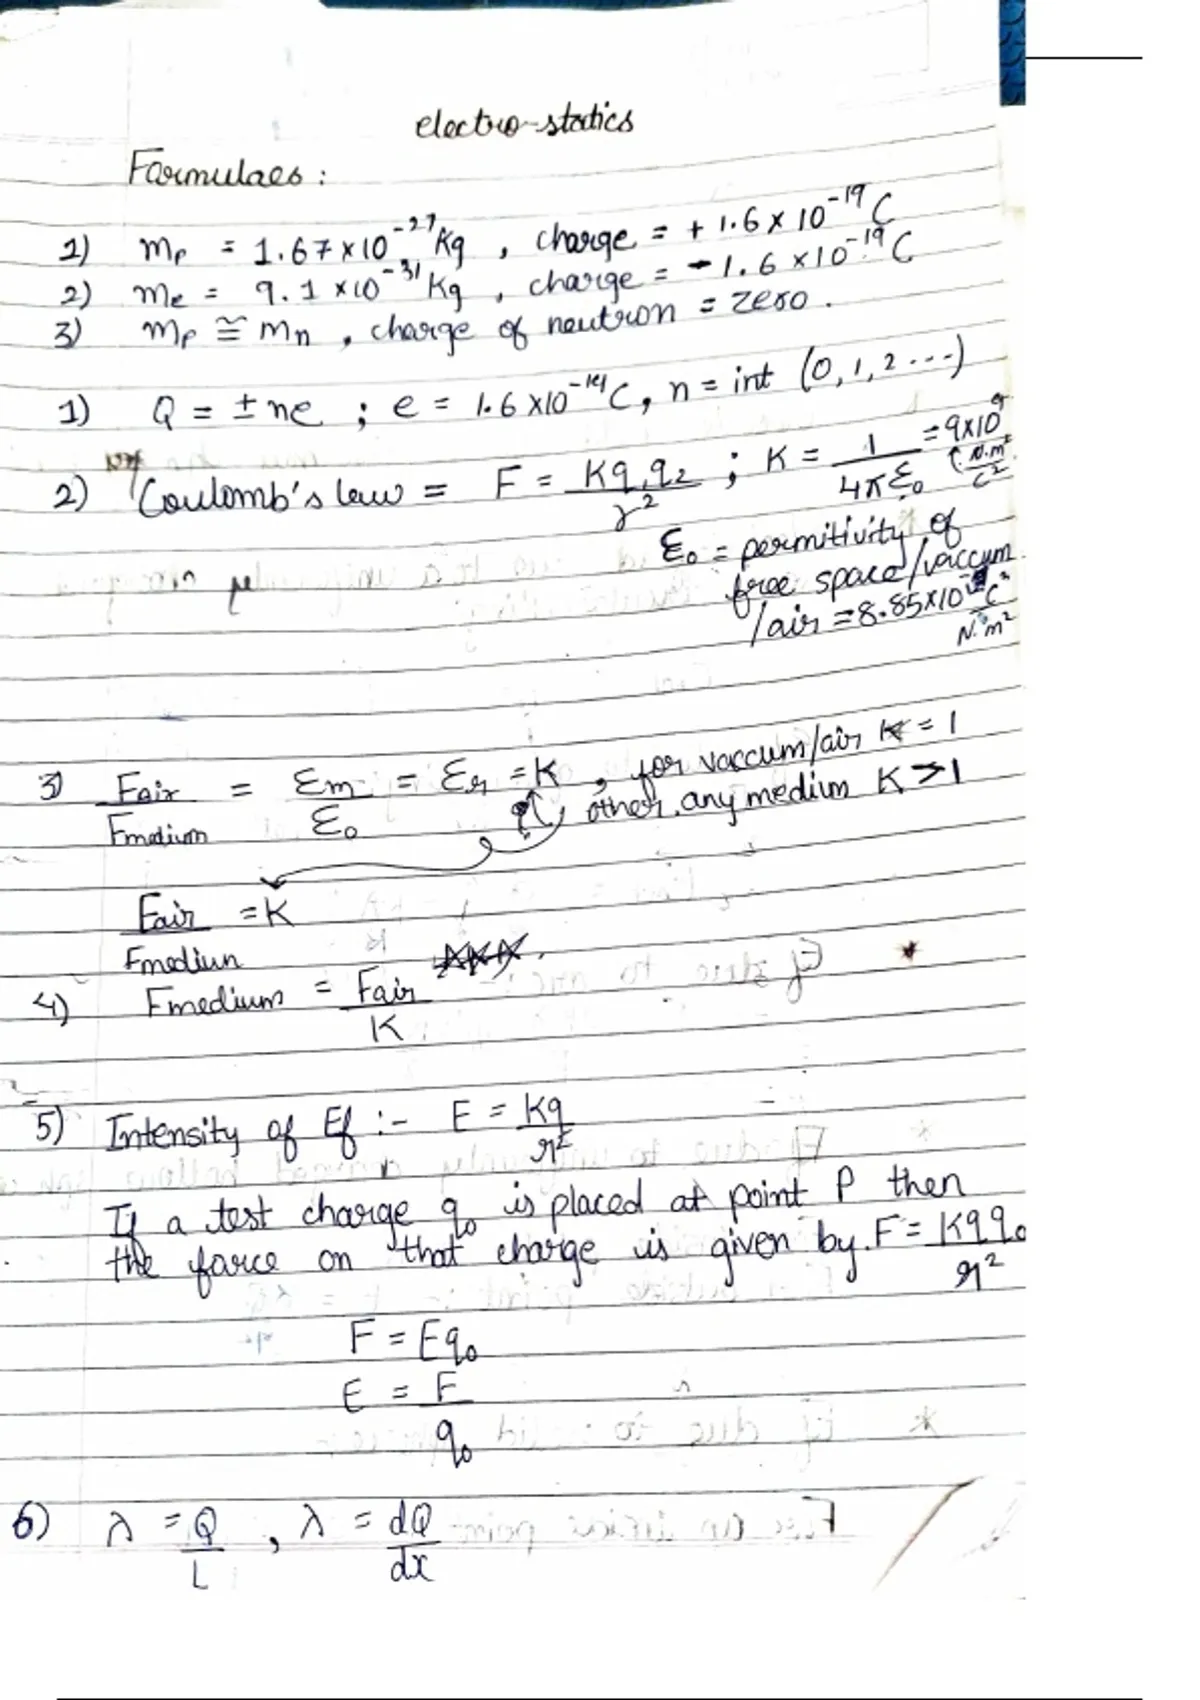 electro-statics
Formulaes :
1) mp = 1.67×10⁻²⁷ Kg , charge = + 1.6 × 10⁻¹⁹ C
2) me = 9.1 ×10⁻³¹ Kg , charge = -1.6 ×10⁻¹⁹ C
3) mp ≅ mn , charge of neutron = zero .
1) Q = ± ne ; e = 1.6 ×10⁻¹⁹ C, n = int (0, 1, 2 ....)
2) Coulomb's law = F = Kq₁q₂/r² ; K = 1/4πε₀ = 9×10⁹ (N.m²/C²
ε₀ = permitivity of
free space/vaccum
/air = 8.85×10⁻¹² C²/N.m²
3) Fair/Fmedium = εm/ε₀ = εr = K , for vaccum/air K = 1
other any medium K > 1
Fair/Fmediun = K
4) Fmedium = Fair/K
5) Intensity of Ef :- E = Kq/r²
If a test charge q₀ is placed at point P then
the force on that charge is given by. F = Kqq₀/r²
F = Eq₀
E = F/q₀
6) λ = Q/L , λ = dQ/dx